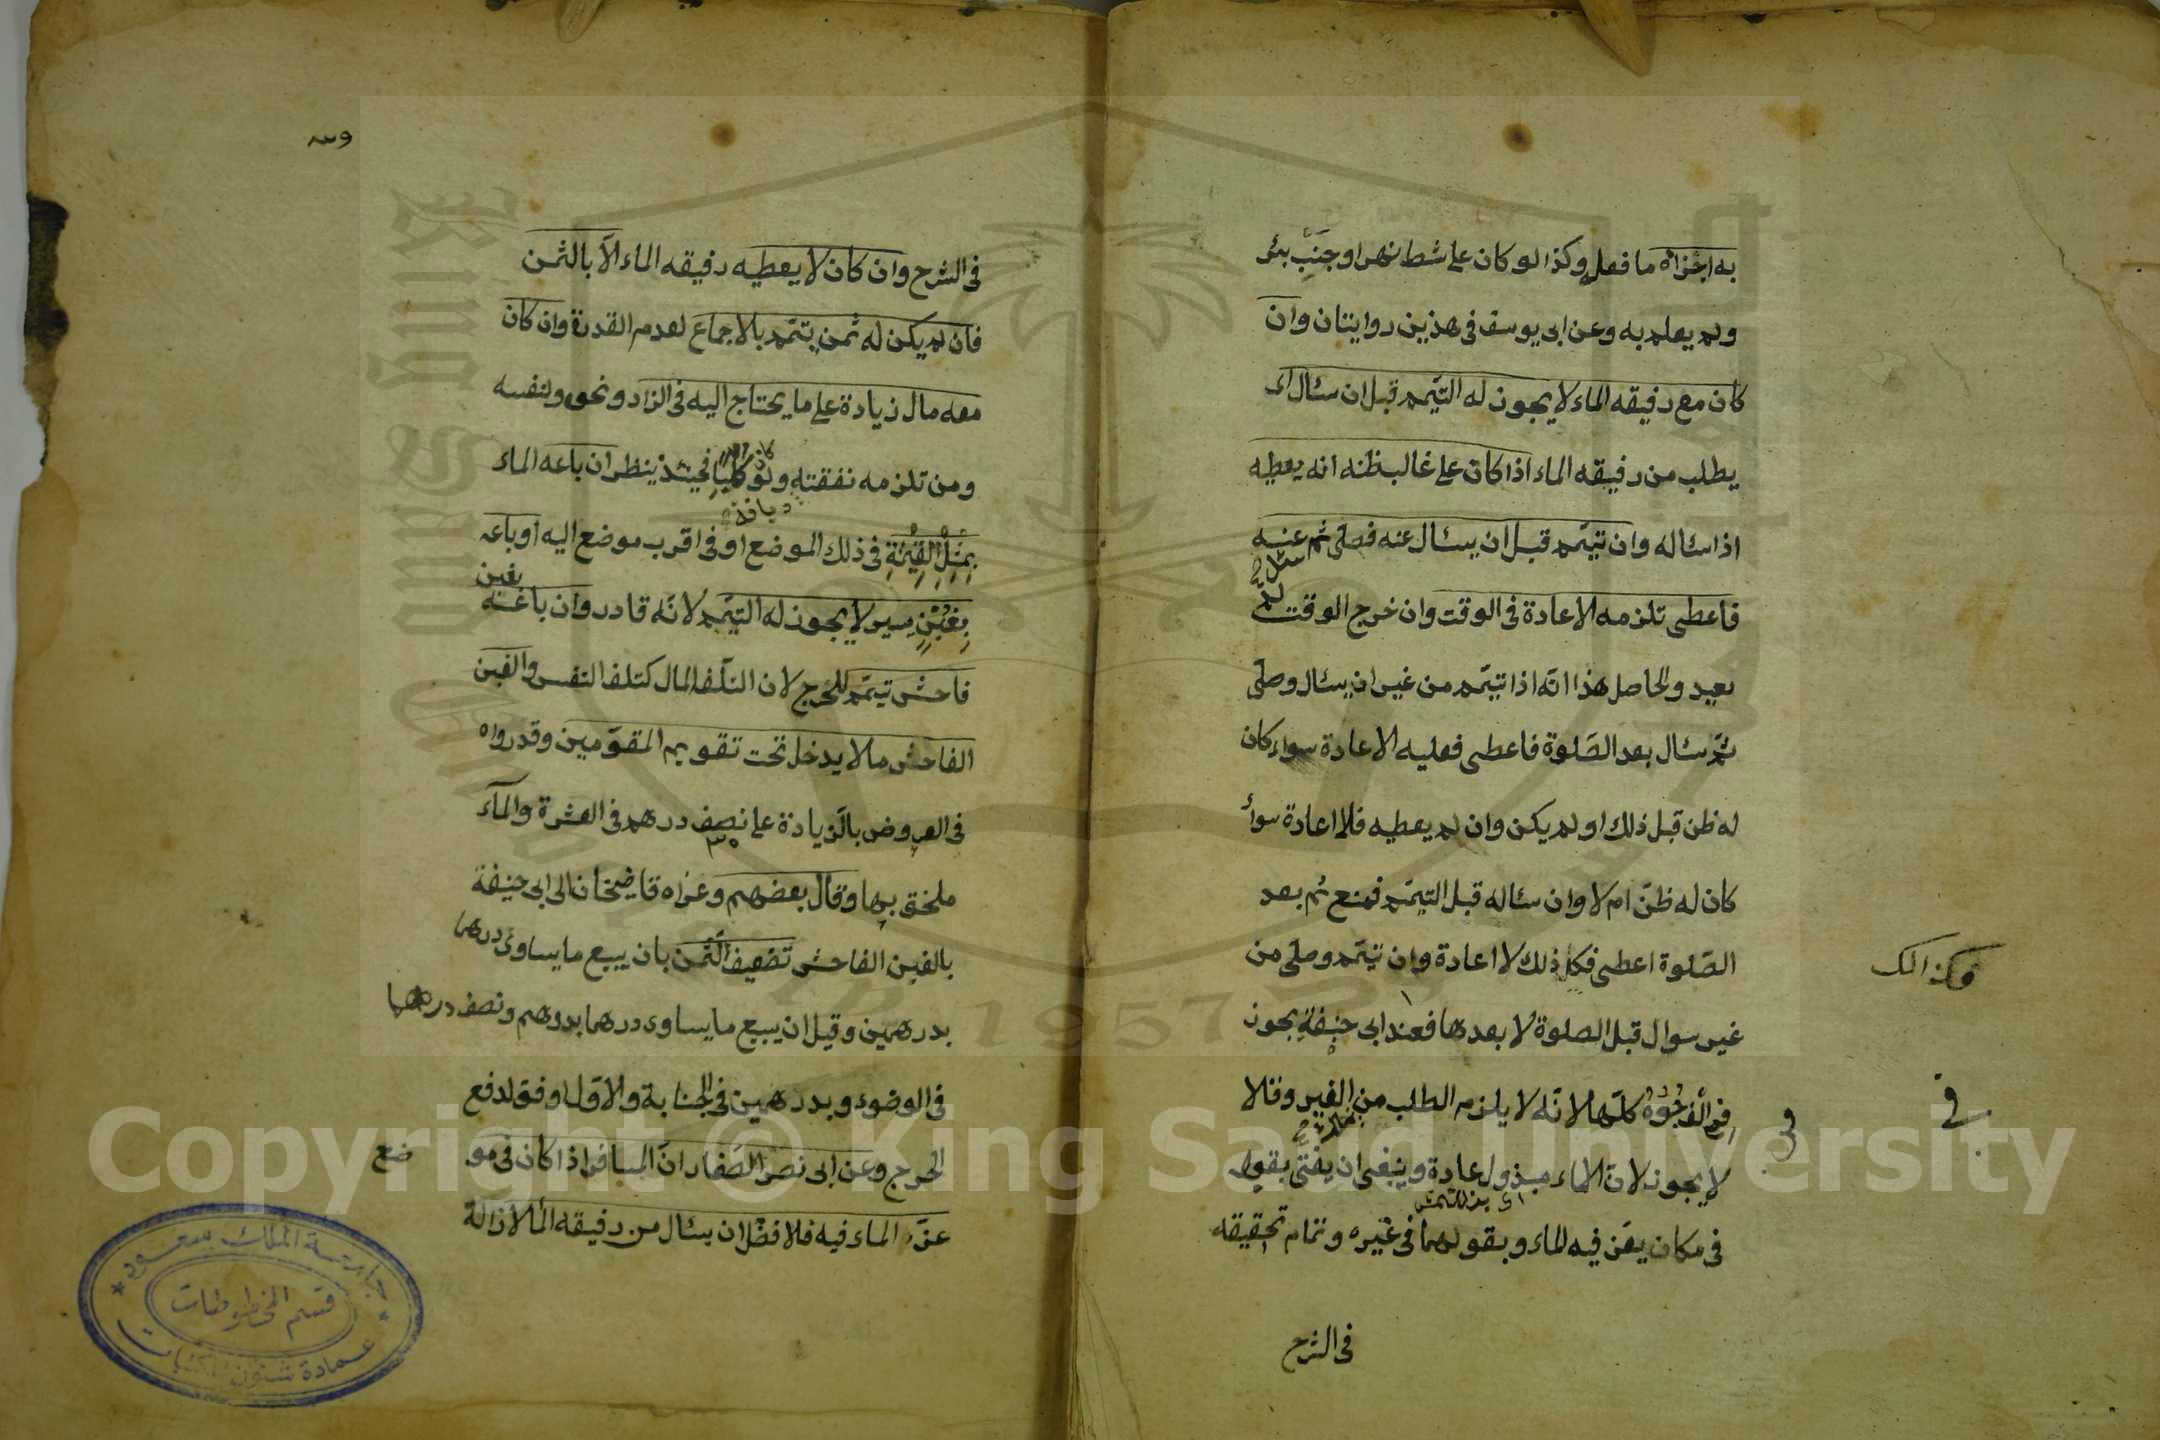 به اجزاه ما فعل وكذا لو كان على شط نهر او جَنْبِ بئر
ولم يعلم به وعن ابى يوسف فى هذين روايتان وان
كان مع رفيقه الماء لا يجوز له التيمّم قبل ان سئال اى
يطلب من رفيقه الماء اذا كان على غالب ظنه انه يعطيه
اذا سئاله وان تيمّم قبل ان يسئال عنه فصلى ثم عنه
سئل
فاعطى تلزمه الاعادة فى الوقت وان خرج الوقت لم
يعيد والحاصل هذا انّه اذا تيمّم من غير ان يسئال وصلى
ثمّ سئال بعد الصّلوة فاعطى فعليه الاعادة سواء كان
له ظن قبل ذلك او لم يكن وان لم يعطيه فلا اعادة سواءً
كان له ظنّ ام لا وان سئاله قبل التيمّم فمنع ثم بعد
الصّلوة اعطى فكل ذلك لا اعادة وان تيمّم وصلى من
وكذالك
غير سوال قبل الصلوة لا بعدها فعند ابى حنيفة يجوز
فى الْوُجُوهِ كلّها لانّه لا يلزم الطلب من الغير وقالا
فى
لا يجوز لان الماء مبذول عادة وينبغى ان يفتى بقوله
فى مكان يعز فيه الماء وبقولهما فى غيره وتمام تحقيقه
فى الشرح
فى الشرح وان كان لا يعطيه رفيقه الماء الّا بالثمن
فان لم يكن له ثمن يتيمّم بالاجماع لعدم القدرة وان كان
معه مال زيادة على ما يحتاج اليه فى الزاد ونحوه لنفسه
ومن تلزمه نفقته ولو كلبا فحينئذ ينظر ان باعه الماء
بِمِثْلِ الْقِيْمَةِ فى ذلك الموضع او فى اقرب موضع اليه او باعه
بِغَبْنٍ يسير لا يجوز له التيمّم لانّه قادر وان باعه
بغبن
فاحش تيمّم للحرج لان التلف المال كتلف النفس والغبن
الفاحش ما لا يدخل تحت تقويم المقوّمين وقدروا
فى العروض بالزيادة على نصف درهم فى العشرة والمآء
ملحق بها وقال بعضهم وعزاه قاضيخان الى ابى حنيفة
بالغبن الفاحش تضعيف الثّمن بان يبيع ما يساوى درهما
بدرهمين وقيل ان يبيع ما يساوى درهما بدرهم ونصف درهما
فى الوضوء وبدرهمين فى الجنابة والاول اوفق لدفع
الحرج وعن ابى نصر الصّفار انّ المسافر اذا كان فى مو
ضع
عزّ الماء فيه فلافضل ان يسئال من رفيقه الماء لازالة
جامعة الملك سعود
قسم المخطوطات
عمادة شئون المكتبات
King Saud University
1957
Copyright © King Saud University